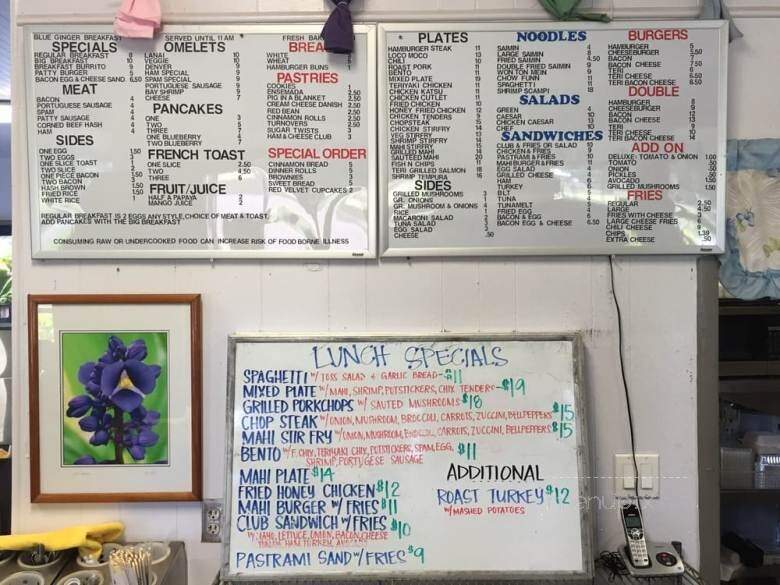 BLUE GINGER BREAKFAST SERVED UNTIL 11 AM
SPECIALS
REGULAR BREAKFAST
BIG BREAKFAST 10
BREAKFAST BURRITO 9
PATTY BURGER 5
BACON EGG & CHEESE SAND. 6.50
MEAT
BACON 4
PORTUGUESE SAUSAGE 4
SPAM 4
PATTY SAUSAGE 4
CORNED BEEF HASH 4
HAM 4
SIDES
ONE EGG 1.50
TWO EGGS 3
ONE SLICE TOAST 1
TWO SLICE
ONE PIECE BACON 1.50
TWO BACON
HASH BROWN 1.50
FRIED RICE
WHITE RICE 1
OMELETS
LANAI 10
VEGGIE 10
DENVER 9
HAM SPECIAL 9
SPAM SPECIAL 9
PORTUGUESE SAUSAGE 9
BAY SHRIMP 9
CHEESE 7
PANCAKES
ONE 3
TWO 5
THREE 7
ONE BLUEBERRY 4
TWO BLUEBERRY 7
FRENCH TOAST
ONE SLICE 2.50
TWO 4.50
THREE 6
FRUIT/JUICE
HALF A PAPAYA
MANGO JUICE
FRESH
BREA
WHITE
WHEAT
HAMBURGER BUNS
PASTRIES
COOKIES
ENSEMADA 2.50
PIG IN A BLANKET 2.50
CREAM CHEESE DANISH 2.50
RED BEAN
CINNAMON ROLLS
TURNOVERS
SUGAR TWISTS
HAM & CHEESE CLUB 3
SPECIAL ORDER
CINNAMON BREAD 5
DINNER ROLLS 5
BROWNIES
SWEET BREAD 5
RED VELVET CUPCAKES
REGULAR BREAKFAST IS 2 EGGS ANY STYLE, CHOICE OF MEAT & TOAST.
ADD PANCAKES WITH THE BIG BREAKFAST
CONSUMING RAW OR UNDERCOOKED FOOD CAN INCREASE RISK OF FOOD BORNE ILLNESS
PLATES
HAMBURGER STEAK 11
LOCO MOCO 13
CHILI 10
ROAST PORK 11
BENTO 11
MIXED PLATE 19
TERIYAKI CHICKEN 11
CHICKEN KATSU 11
CHICKEN CUTLET 11
FRIED CHICKEN 10
HONEY FRIED CHICKEN 12
CHICKEN TENDERS 9
CHOPSTEAK 15
CHICKEN STIRFRY
VEG STIRFRY
SHRIMP STIRFRY
MAHI STIRFRY
GRILLED MAHI
SAUTEED MAHI 20
FISH N CHIPS 11
TERI GRILLED SALMON 18
SHRIMP TEMPURA 16
SIDES
GRILLED MUSHROOMS 3
GR. ONIONS
GR. MUSHROOM & ONIONS
RICE
MACARONI SALAD
TUNA SALAD
EGG SALAD
CHEESE .50
NOODLES
SAIMIN
LARGE SAIMIN
FRIED SAIMIN
DOUBLE FRIED SAIMIN 9
WON TON MEIN
CHOW FUNN
SPAGHETTI
SHRIMP SCAMPI
SALADS
GREEN
CAESAR
CHICKEN CAESAR
CHEF
SANDWICHES
CLUB & FRIES OR SALAD
CHICKEN & FRIES
PASTRAMI & FRIES
MAHI BURGER & FRIES
EGG SALAD
GRILLED CHEESE
HAM
TURKEY
BLT
TUNA
TUNAMELT
FRIED EGG
BACON & EGG
BACON EGG & CHEESE 6.50
BURGERS
HAMBURGER 5
CHEESEBURGER 5.50
BACON 7
BACON CHEESE 7.50
TERI 6
TERI CHEESE 6.50
TERI BACON CHEESE 8.50
DOUBLE
HAMBURGER 8
CHEESEBURGER 9
BACON 12
BACON CHEESE 13
TERI 9
TERI CHEESE 10
TERI BACON CHEESE 14
ADD ON
DELUXE-TOMATO & ONION 1.00
TOMATO .50
ONION .50
PICKLES .50
AVOCADO 1.50
GRILLED MUSHROOMS 1.50
FRIES
REGULAR 2.50
LARGE 4.50
FRIES WITH CHEESE
LARGE CHEESE FRIES
CHILI CHEESE
CHIPS 1.39
EXTRA CHEESE .50
LUNCH SPECIALS
SPAGHETTI W/ TOSS SALAD + GARLIC BREAD - $11
MIXED PLATE W/ MAHI, SHRIMP, POTSTICKERS, CHIX TENDERS - $19
GRILLED PORKCHOPS W/ SAUTED MUSHROOMS $18
CHOP STEAK W/ ONION, MUSHROOM, BROCOLI, CARROTS, ZUCCINI, BELLPEPPERS $15
MAHI STIR FRY W/ ONION, MUSHROOM, BROCOLI, CARROTS, ZUCCINI, BELLPEPPERS $15
BENTO W/ F. CHIX, TERIYAKI CHIX, POTSTICKERS, SPAM, EGG, $11
SHRIMP, PORTUGESE SAUSAGE
MAHI PLATE $14
FRIED HONEY CHICKEN $12
MAHI BURGER W/ FRIES $11
CLUB SANDWICH W/ FRIES $10
W/ MAYO, LETTUCE, ONION, BACON, CHEESE
HAM, TURKEY
PASTRAMI SAND W/ FRIES $9
ADDITIONAL
ROAST TURKEY $12
W/ MASHED POTATOES